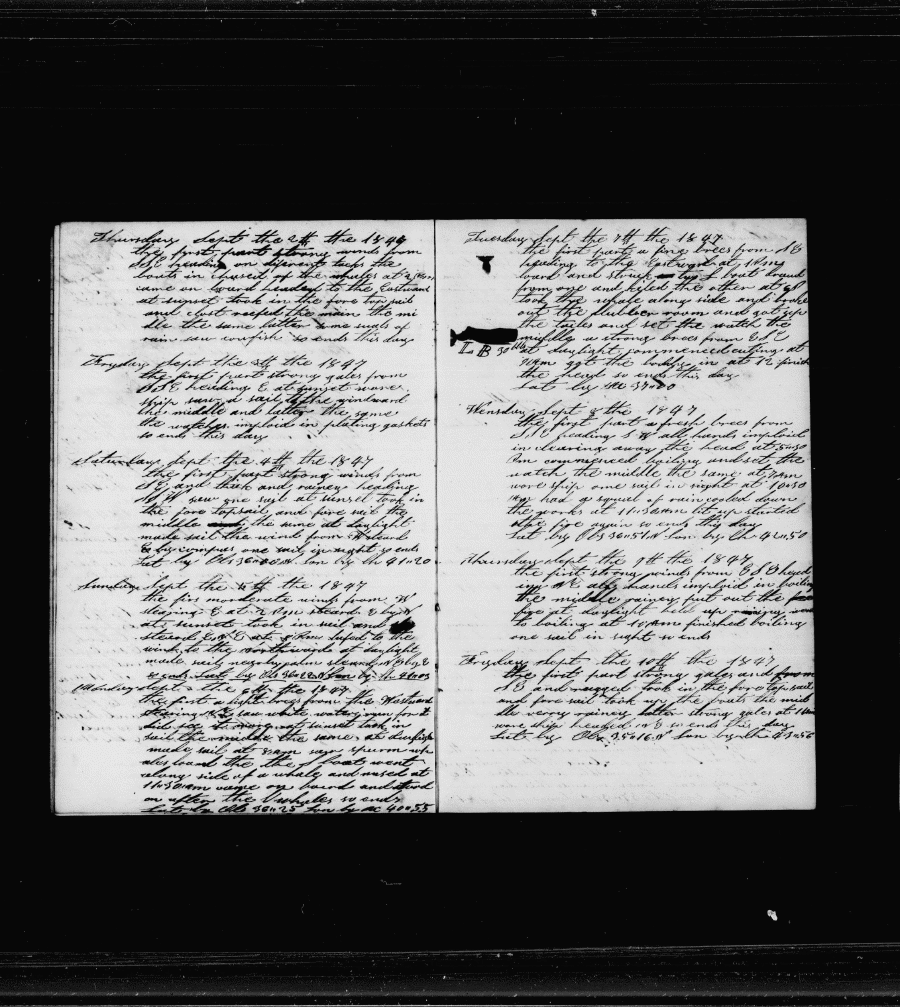 Thursday Sept the 2th the 1847
the first part strong winds from
S.E heading on diferent tacks the
boats in chased of the whales at 2
came on board headed to the Eastward
at sunset took in the fore top sail
and clost reefed the main the mi
ddle the same latter some sualls of
rain saw cowfish so ends this day
Fryday Sept the 3th the 1847
the first part strong gales from
S.S.E heading E at sunset wore
ship saw a sail to the windward
the middle and latter the same
the watches imploid in plating gaskets
so ends this day
Saturdays Sept the 4th the 1847
the first part strong winds from
S.E and thick and rainey heading
saw one sail at sunset took in
the fore topsail and fore sail the
middle the same at daylight
made sail the wind from W steard
E by compas one sail in sight so ends
Lat by Obs 36=00 N Lon by Ch 41=20
Sunday Sept the 5th the 1847
the firs morderate winds from W
stearing E at 2 Pm steard E by N
at sunset took in sail and
steard E.N.E at lufed to the
wind to the northwards at daylight
made sail steard N by E
so ends Lat by Obs 36=22 N Lon by Ch 41=03
Monday Sept the 6th the 1847
the first a light brees from the Westward
stearing saw white
took in
sail the middle the same at daylight
made sail at 8 am saw spurm wh
ales loard the boats went
along side of a whale and mised at
11=30 am came on board and stood
on after the whales so ends
Lat by Obs 36=25 Lon by Ch 40=55
Tuesday Sept the 7th the 1847
the first part a fine brees from S.E
heading to the Eastward at 1 Pm
loard and struck boat loard
from one and kiled the other at
took the whale along side and broke
out the blubber room and got up
the tacles and set the watch the
middle a strong brees from E.S.E
at daylight commenced cuting at
got the body in at 12 finish
the head so ends this day
Lat by Ch 37=00
L B 30 bbls
Wensday Sept 8 the 1847
the first part a fresh brees from
S.E heading S W all hands imploid
in clearing away the head at 5=30
Pm commenced boiling and set the
watch the middle the same at
wore ship one sail in sight at 10=30
had a squal of rain cooled down
the works at 11=30 am lit up started
fire again so ends this day
Lat by Obs 36=51 N Lon by Ch 42=50
Thursday Sept the 9th the 1847
the first strong winds from head
ing N E all hands imploid in boiling
the middle rainey put out the
fire at daylight
to boiling at 10 am finished boiling
one sail in sight so ends
Fryday Sept the 10th the 1847
the first part strong gales and from
S E and rugged took in the fore top sail
and fore sail took up the boats the mid
dle verry rainey latter strong gales at
wore ship headed N E so ends this day
Lat by Obs 35=16 N Lon by Ch 43=56